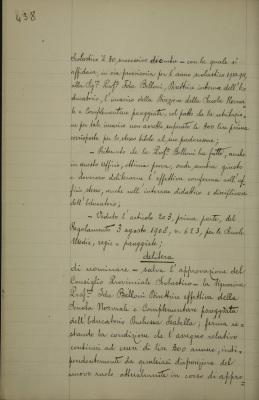 438
Scolastico il 30, successivo dicembre – con la quale si
affidava, in via provvisoria per l'anno scolastico
alla Sig.na Prof.ssa Ida Belloni, Direttrice interna dell'E-
ducatorio, l'incarico della Direzione della Scuola Norma-
le e Complementare pareggiata, col patto che la retribuzio-
ne per tale incarico non avrebbe superato le 200 lire prima
corrisposte per lo stesso titolo al suo predecessore;
– Ritenuto che la Prof.ssa Belloni ha fatto, anche
in questo ufficio, ottima prova, onde sembra giusto
e doveroso deliberarne l'effettiva conferma nell'uf-
ficio stesso, anche nell'interesse didattico e disciplinare
dell'Educatorio;
– Veduto l'articolo 203, prima parte, del
Regolamento 3 agosto 1908, n. 623, per le Scuole
Medie, regie e pareggiate;
delibera
di nominare – salva l'approvazione del
Consiglio Provinciale Scolastico – la Signorina
Prof.ssa Ida Belloni Direttrice effettiva della
Scuola Normale e Complementare pareggiata
dell'Educatorio Isabella; ferma re-
stando la condizione che l'assegno relativo
continui ad essere di lire 200 annue, indi-
pendentemente da qualsiasi disposizione del
nuovo ruolo attualmente in corso di appro-